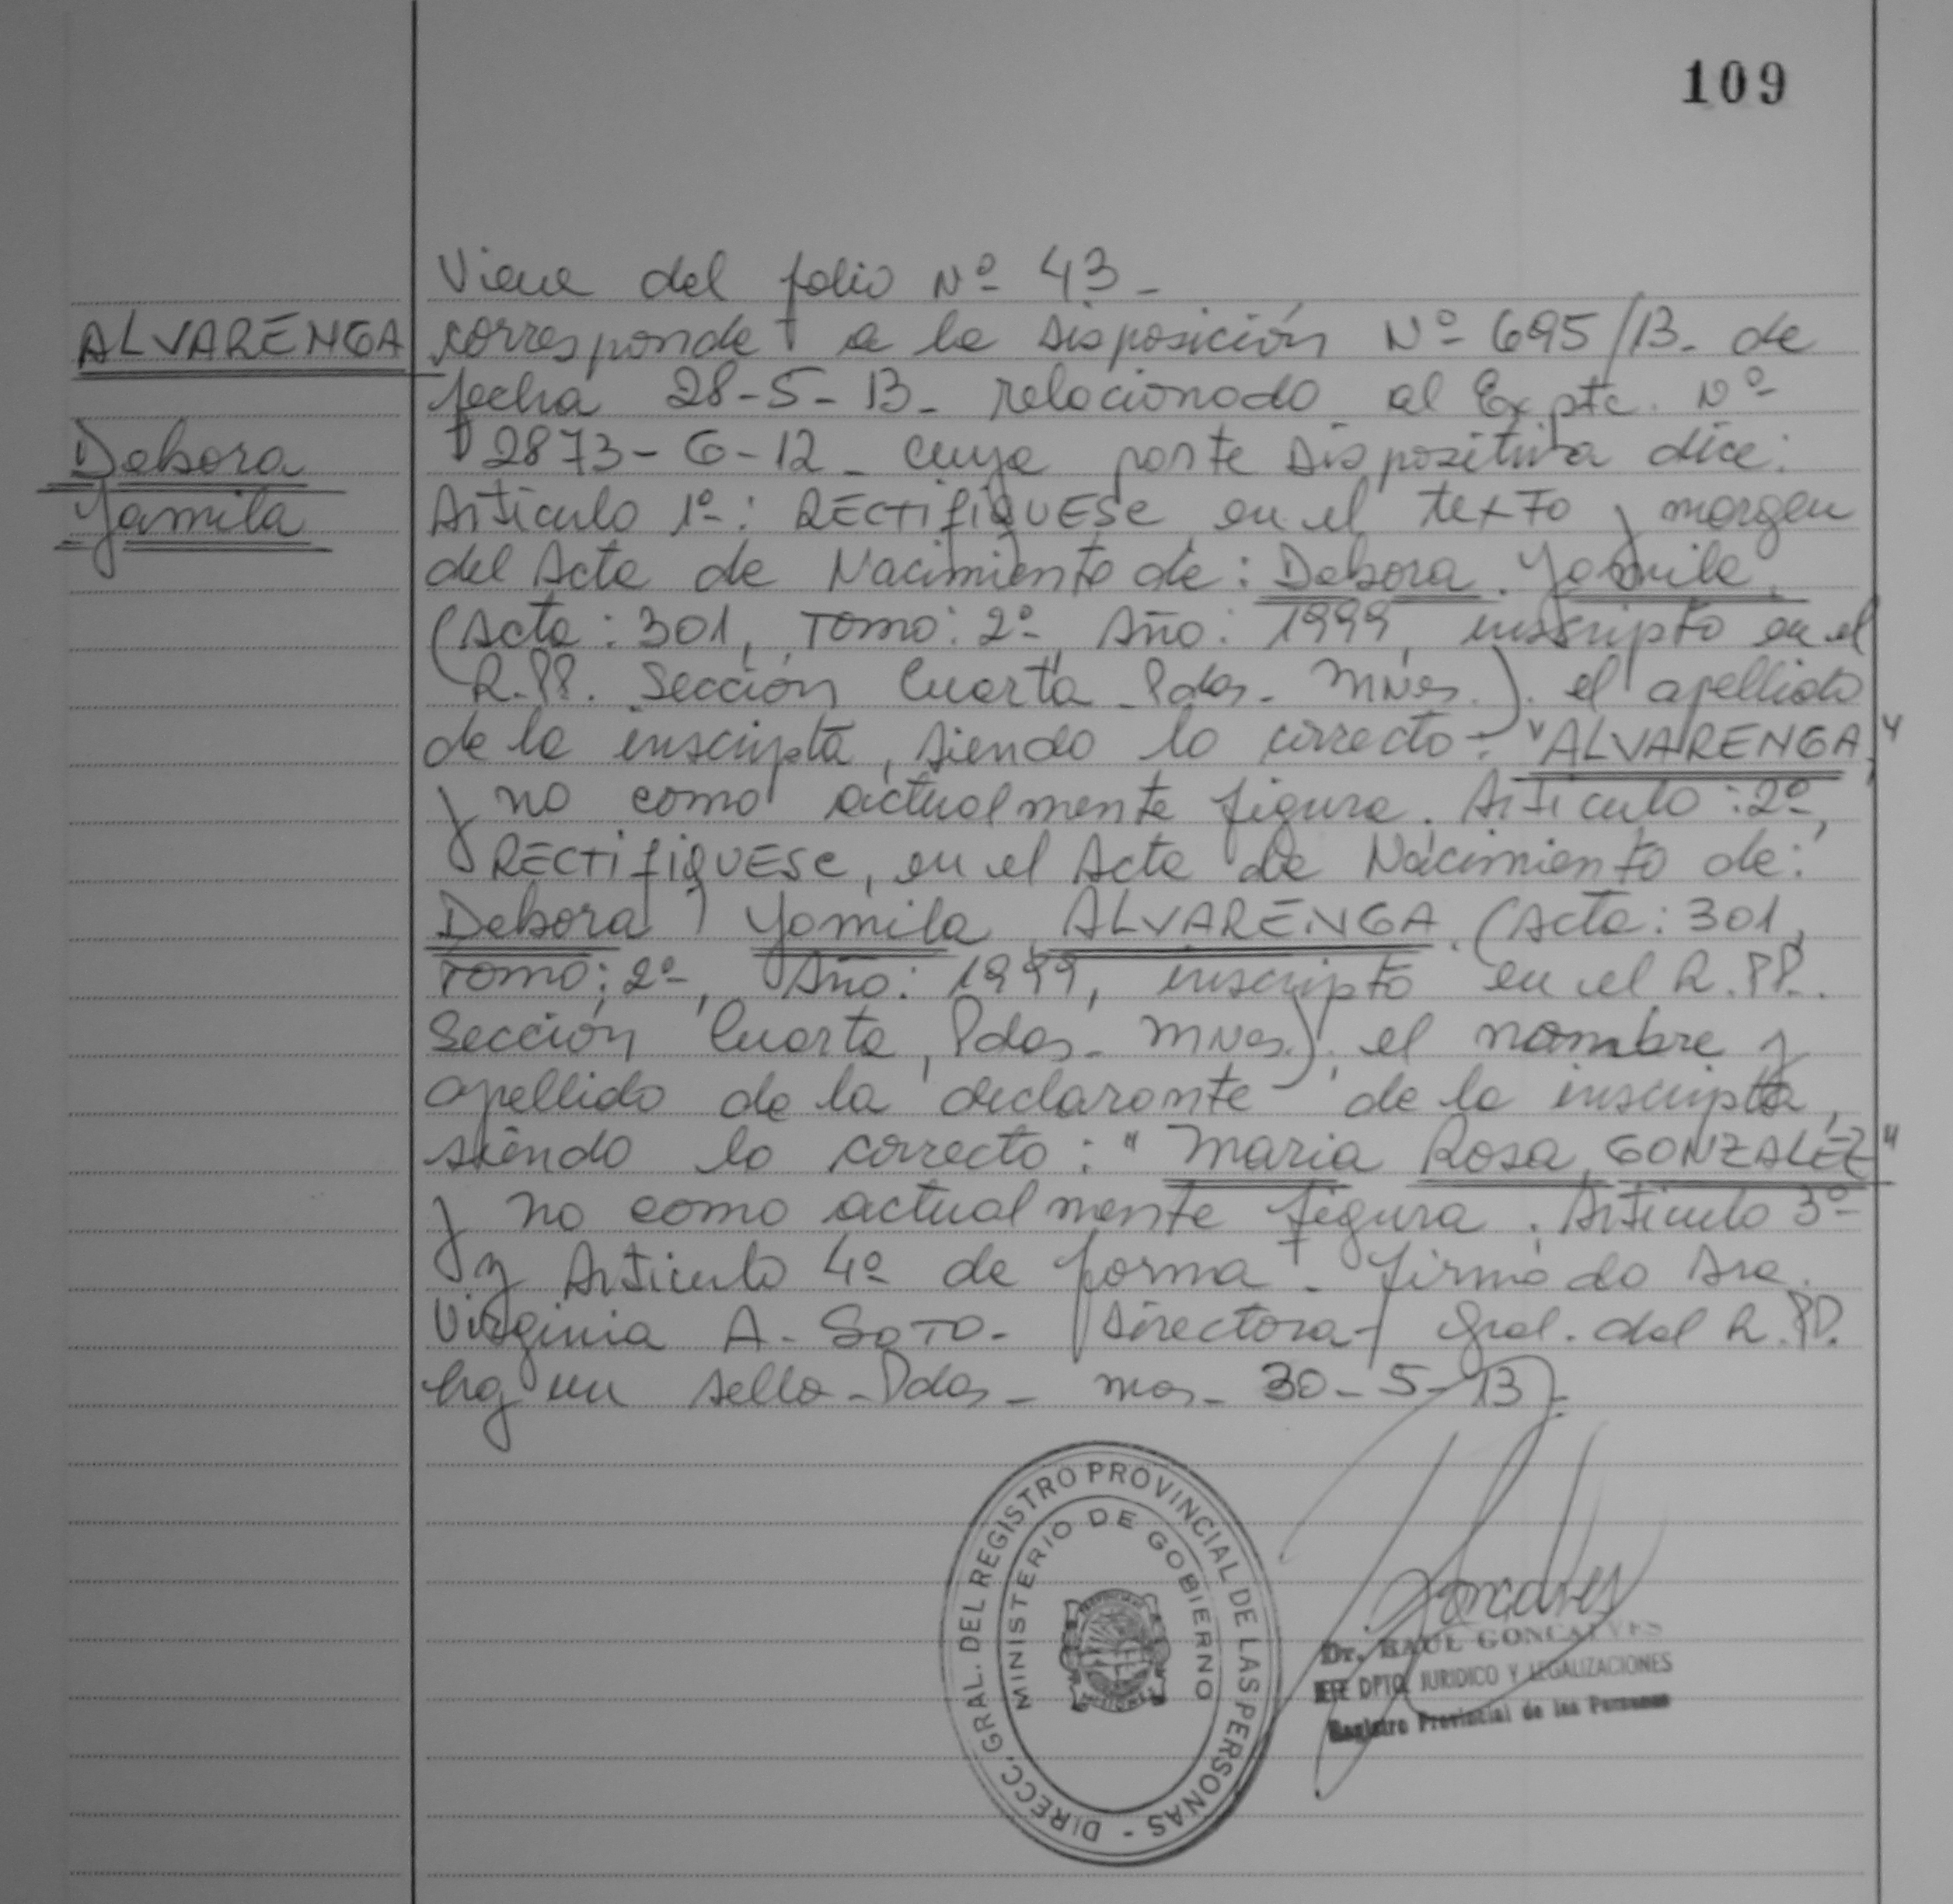 109
Viene del folio Nº 43 -
ALVARENGA
corresponde a la Disposición Nº 695/13 - de
fecha 28-5-13 - relacionado al Expte. Nº
Debora
2873-G-12 - cuya parte Dispositiva dice:
Yamila
Artículo 1º: RECTIFIQUESE en el texto y margen
del Acta de Nacimiento de: Debora Yamila
(Acta: 301, Tomo: 2º, Año: 1999, inscripto en el
R.PP. Sección Cuarta - Pdas. Mnes.). el apellido
de la inscripta, siendo lo correcto: "ALVARENGA"
y no como actualmente figura. Artículo: 2º,
RECTIFIQUESE, en el Acta de Nacimiento de:
Debora Yamila ALVARENGA. (Acta: 301,
Tomo: 2º, Año: 1999, inscripto en el R.PP.
Sección Cuarta, Pdas. Mnes.). el nombre y
apellido de la declarante de la inscripta,
siendo lo correcto: "Maria Rosa GONZALEZ"
y no como actualmente figura. Artículo 3º
y Artículo 4º de forma - firmado Sra.
Virginia A. SOTO - Directora Gral. del R.PP.
hay un sello - Pdas - mns - 30-5-13
DIRECC. GRAL. DEL REGISTRO PROVINCIAL DE LAS PERSONAS -
MINISTERIO DE GOBIERNO
Goncalves
Dr. RAUL GONCALVES
JEFE DPTO. JURIDICO Y LEGALIZACIONES
Registro Provincial de las Personas